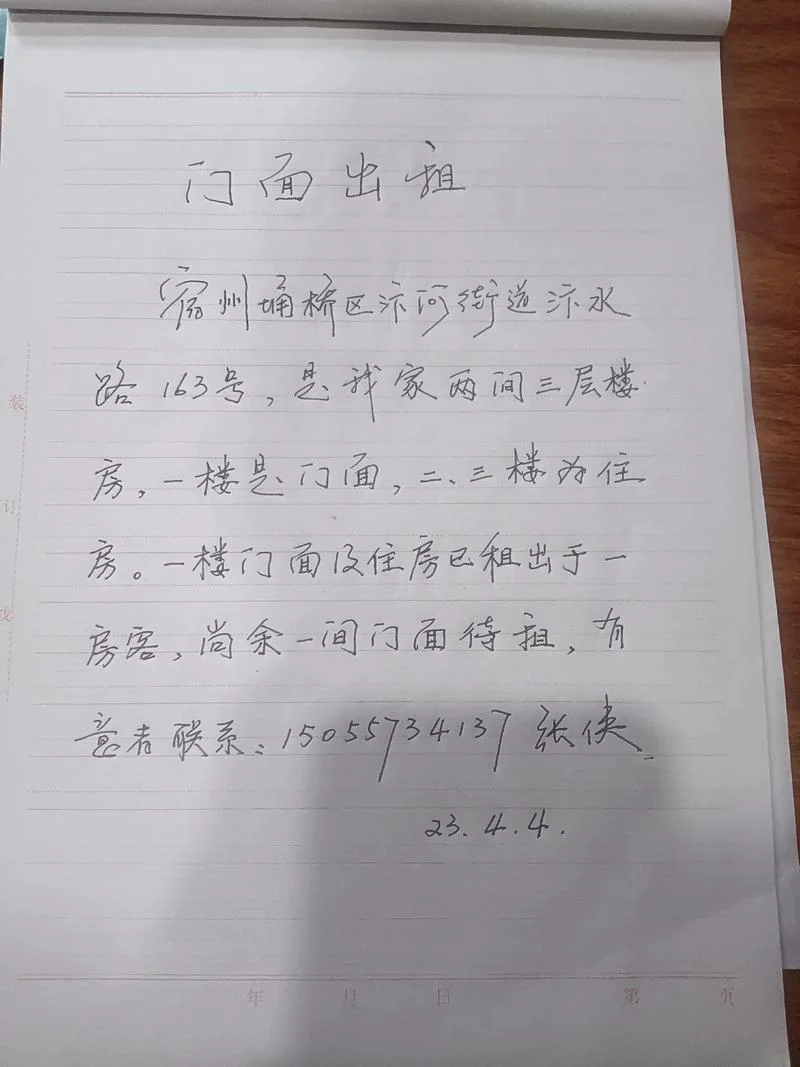 门面出租
宿州埇桥区汴河街道汴水
路163号，是我家两间三层楼
房，一楼是门面，二、三楼为住
房。一楼门面及住房已租出于一
房客，尚余一间门面待租，有
意者联系：15055734137张侠
23.4.4.
装
订
线
年 月 日 第 页